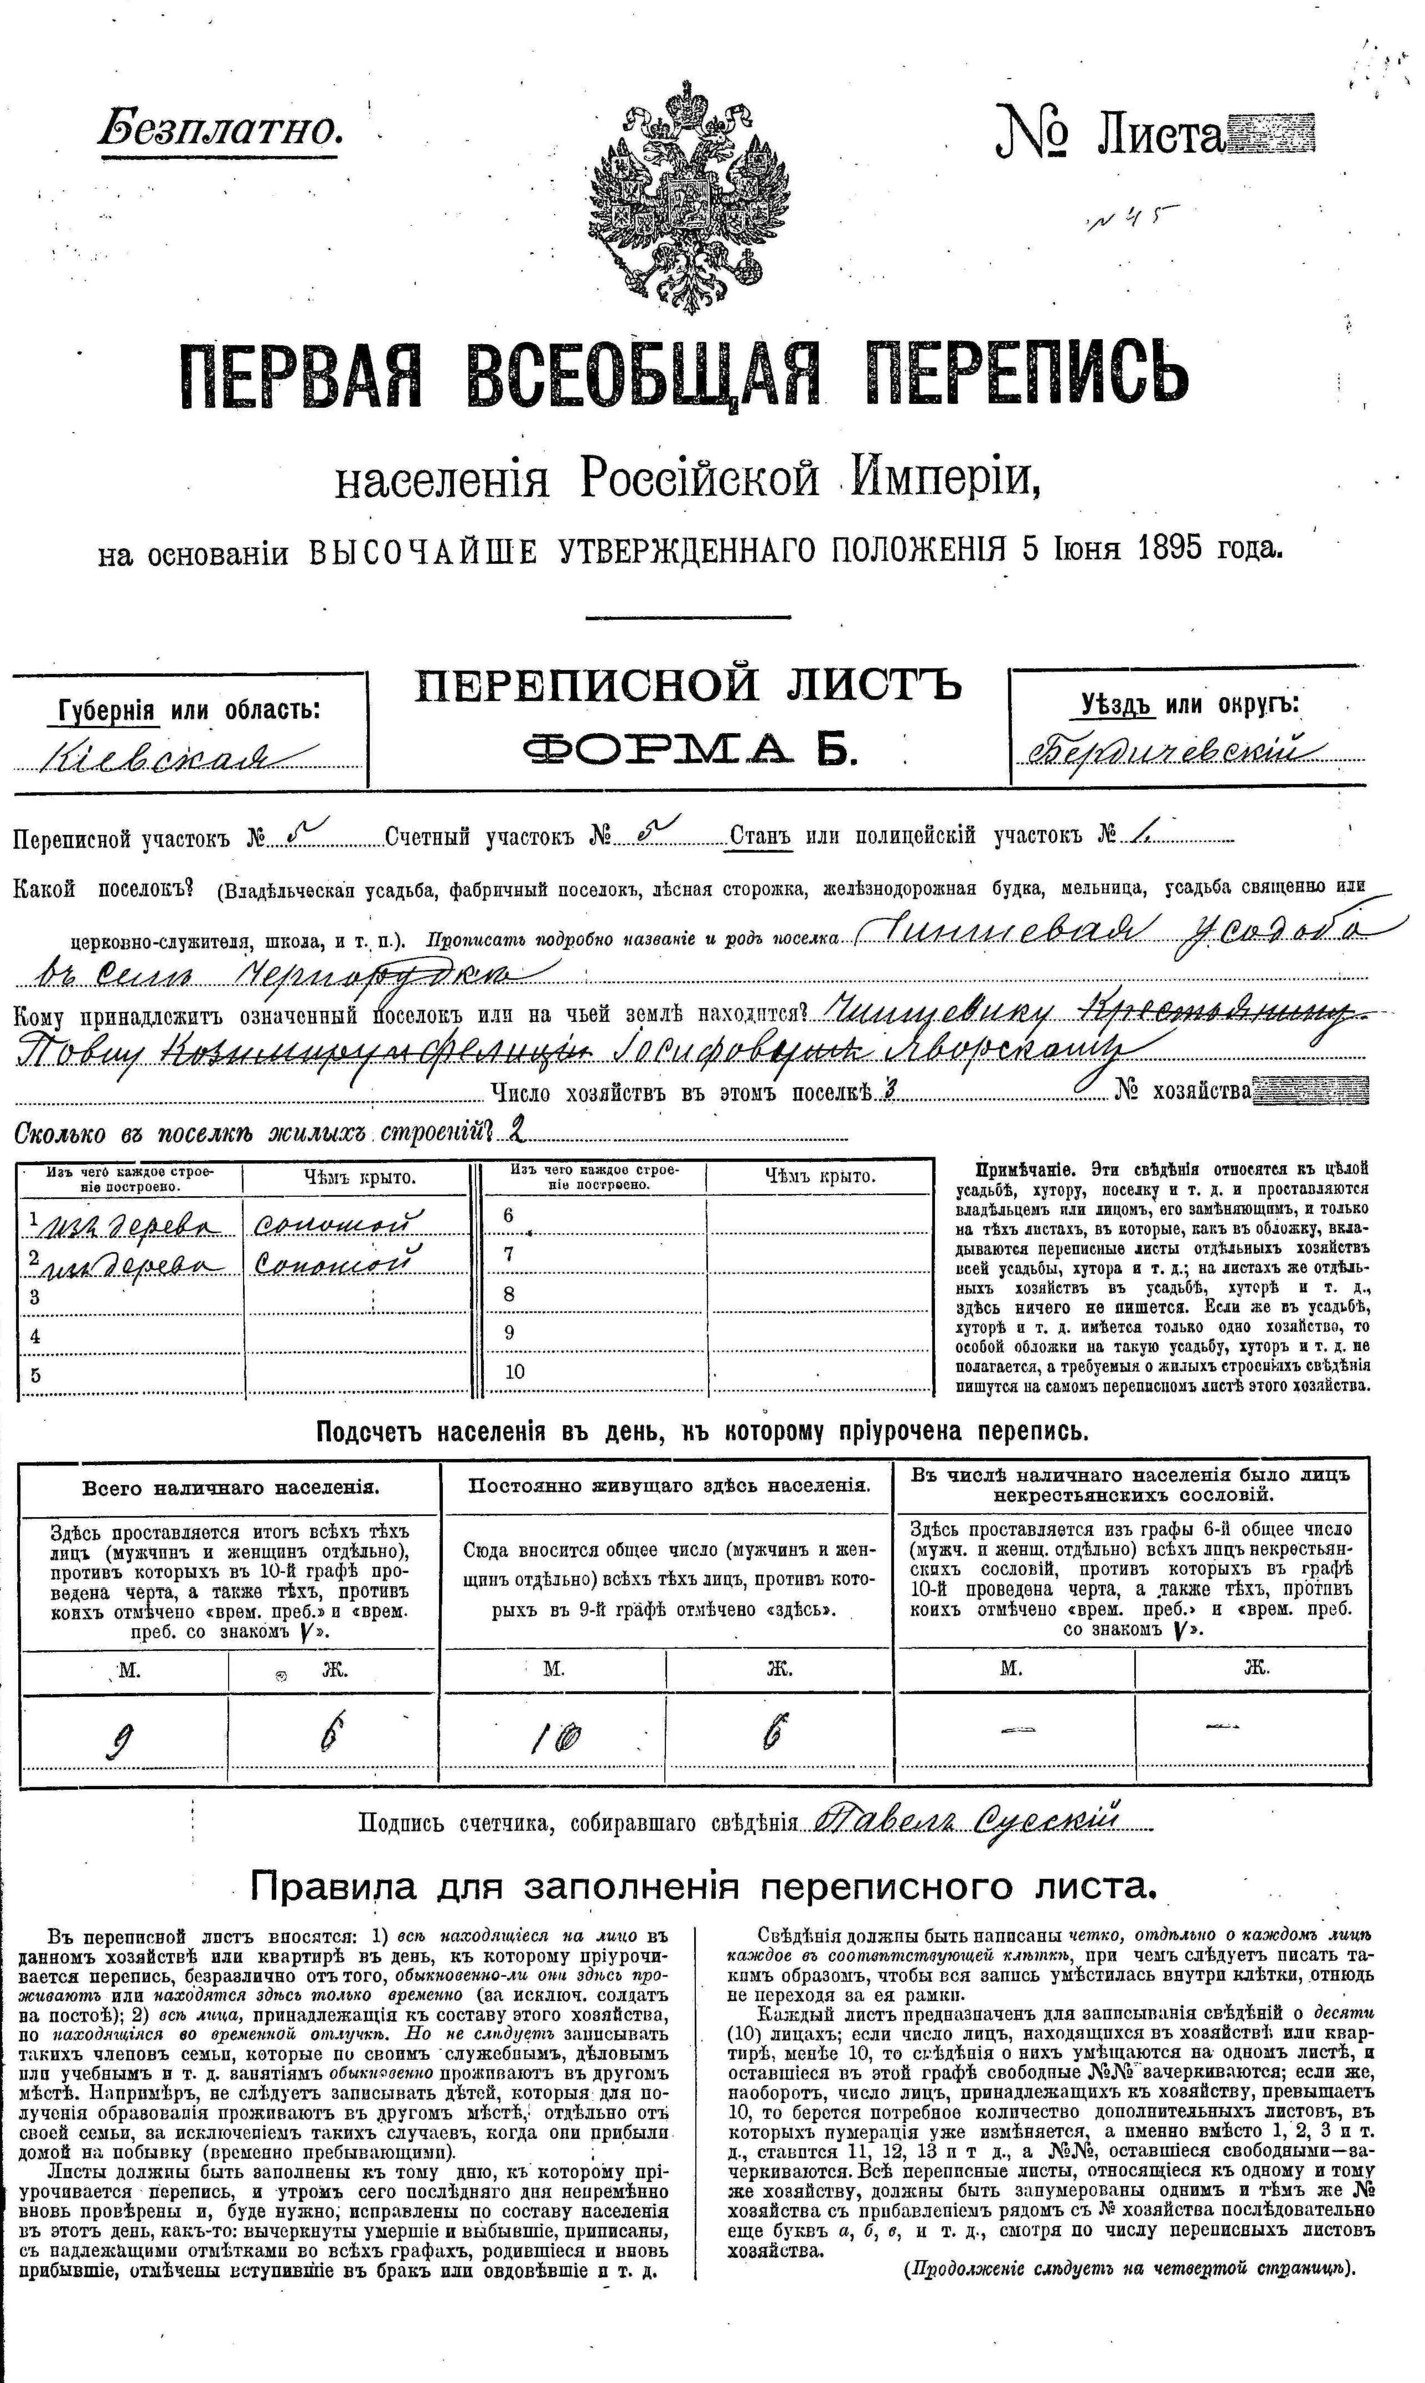 Безплатно.
№ Листа
№ 45
ПЕРВАЯ ВСЕОБЩАЯ ПЕРЕПИСЬ
населенія Россійской Имперіи,
на основаніи ВЫСОЧАЙШЕ УТВЕРЖДЕННАГО ПОЛОЖЕНІЯ 5 Іюня 1895 года.
ПЕРЕПИСНОЙ ЛИСТЪ
ФОРМА Б.
Губернія или область:
Кіевская
Уѣздъ или округъ:
Бердичевскій
Переписной участокъ № 5 Счетный участокъ № 5 Станъ или полицейскій участокъ № 1.
Какой поселокъ? (Владѣльческая усадьба, фабричный поселокъ, лѣсная сторожка, желѣзнодорожная будка, мельница, усадьба священно или
церковно-служителя, школа, и т. п.). Прописать подробно названіе и родъ поселка Чиншевая усадьба
въ селѣ Чернорудкѣ
Кому принадлежитъ означенный поселокъ или на чьей землѣ находится? Чиншевику Крестьянину
Павлу Козимиру и Фелиціи Іосифовичи Яворскому
Число хозяйствъ въ этомъ поселкѣ 3 № хозяйства
Сколько въ поселкѣ жилыхъ строеній? 2
Изъ чего каждое строе-
ніе построено.
Чѣмъ крыто.
Изъ чего каждое строе-
ніе построено.
Чѣмъ крыто.
1 изъ дерева соломой 6
2 изъ дерева соломой 7
3 8
4 9
5 10
Примѣчаніе. Эти свѣдѣнія относятся къ цѣлой
усадьбѣ, хутору, поселку и т. д. и проставляются
владѣльцемъ или лицомъ, его замѣняющимъ, и только
на тѣхъ листахъ, въ которые, какъ въ обложку, вкла-
дываются переписные листы отдѣльныхъ хозяйствъ
всей усадьбы, хутора и т. д.; на листахъ же отдѣль-
ныхъ хозяйствъ въ усадьбѣ, хуторѣ и т. д.,
здѣсь ничего не пишется. Если же въ усадьбѣ,
хуторѣ и т. д. имѣется только одно хозяйство, то
особой обложки на такую усадьбу, хуторъ и т. д. не
полагается, а требуемыя о жилыхъ строеніяхъ свѣдѣнія
пишутся на самомъ переписномъ листѣ этого хозяйства.
Подсчетъ населенія въ день, къ которому пріурочена перепись.
Всего наличнаго населенія.
Здѣсь проставляется итогъ всѣхъ тѣхъ
лицъ (мужчинъ и женщинъ отдѣльно),
противъ которыхъ въ 10-й графѣ про-
ведена черта, а также тѣхъ, противъ
коихъ отмѣчено «врем. преб.» и «врем.
преб. со знакомъ V».
М. Ж.
9 6
Постоянно живущаго здѣсь населенія.
Сюда вносится общее число (мужчинъ и жен-
щинъ отдѣльно) всѣхъ тѣхъ лицъ, противъ кото-
рыхъ въ 9-й графѣ отмѣчено «здѣсь».
М. Ж.
10 6
Въ числѣ наличнаго населенія было лицъ
некрестьянскихъ сословій.
Здѣсь проставляется изъ графы 6-й общее число
(мужч. и женщ. отдѣльно) всѣхъ лицъ некрестьян-
скихъ сословій, противъ которыхъ въ графѣ
10-й проведена черта, а также тѣхъ, противъ
коихъ отмѣчено «врем. преб.» и «врем. преб.
со знакомъ V».
М. Ж.
— —
Подпись счетчика, собиравшаго свѣдѣнія Павелъ Сусскій
Правила для заполненія переписного листа.
Въ переписной листъ вносятся: 1) всѣ находящіеся на лицо въ
данномъ хозяйствѣ или квартирѣ въ день, къ которому пріурочи-
вается перепись, безразлично отъ того, обыкновенно-ли они здѣсь про-
живаютъ или находятся здѣсь только временно (за исключ. солдатъ
на постоѣ); 2) всѣ лица, принадлежащія къ составу этого хозяйства,
но находящіяся во временной отлучкѣ. Но не слѣдуетъ записывать
такихъ членовъ семьи, которые по своимъ служебнымъ, дѣловымъ
или учебнымъ и т. д. занятіямъ обыкновенно проживаютъ въ другомъ
мѣстѣ. Напримѣръ, не слѣдуетъ записывать дѣтей, которыя для по-
лученія образованія проживаютъ въ другомъ мѣстѣ, отдѣльно отъ
своей семьи, за исключеніемъ такихъ случаевъ, когда они прибыли
домой на побывку (временно пребывающими).
Листы должны быть заполнены къ тому дню, къ которому прі-
урочивается перепись, и утромъ сего послѣдняго дня непремѣнно
вновь провѣрены и, буде нужно, исправлены по составу населенія
въ этотъ день, какъ-то: вычеркнуты умершіе и выбывшіе, приписаны,
съ надлежащими отмѣтками во всѣхъ графахъ, родившіеся и вновь
прибывшіе, отмѣчены вступившіе въ бракъ или овдовѣвшіе и т. д.
Свѣдѣнія должны быть написаны четко, отдѣльно о каждомъ лицѣ
каждое въ соотвѣтствующей клѣткѣ, при чемъ слѣдуетъ писать та-
кимъ образомъ, чтобы вся запись умѣстилась внутри клѣтки, отнюдь
не переходя за ея рамки.
Каждый листъ предназначенъ для записыванія свѣдѣній о десяти
(10) лицахъ; если число лицъ, находящихся въ хозяйствѣ или квар-
тирѣ, менѣе 10, то свѣдѣнія о нихъ умѣщаются на одномъ листѣ, и
оставшіеся въ этой графѣ свободные №№ зачеркиваются; если же,
наоборотъ, число лицъ, принадлежащихъ къ хозяйству, превышаетъ
10, то берется потребное количество дополнительныхъ листовъ, въ
которыхъ нумерація уже измѣняется, а именно вмѣсто 1, 2, 3 и т.
д., ставится 11, 12, 13 и т д., а №№, оставшіеся свободными—за-
черкиваются. Всѣ переписные листы, относящіеся къ одному и тому
же хозяйству, должны быть занумерованы однимъ и тѣмъ же №
хозяйства съ прибавленіемъ рядомъ съ № хозяйства послѣдовательно
еще буквъ а, б, в, и т. д., смотря по числу переписныхъ листовъ
хозяйства.
(Продолженіе слѣдуетъ на четвертой страницѣ).